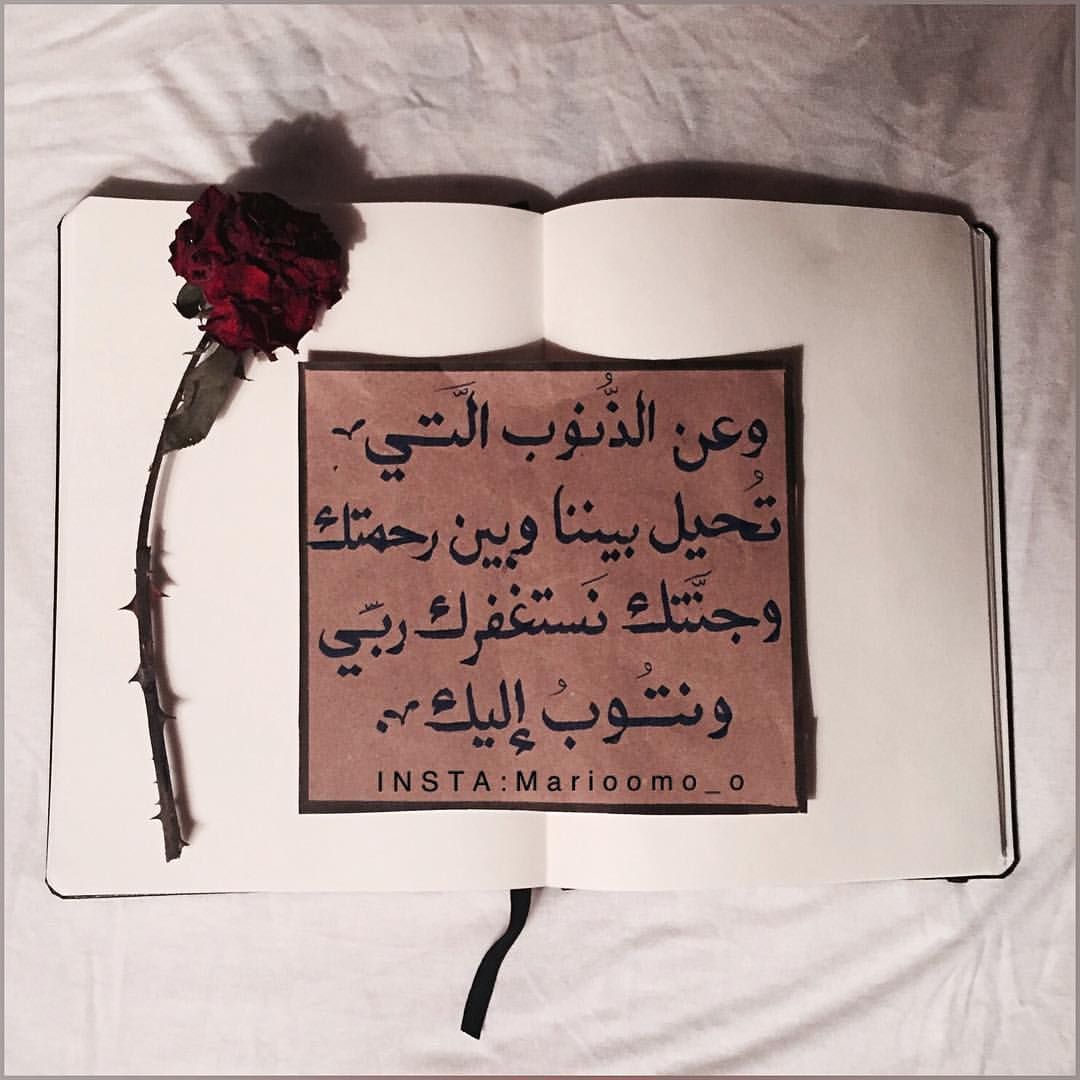 وعن الذُّنوُب الَّتي
تُحيل بيننا وبين رحمتك
وجنَّتَك نَستغفرك ربّي
ونتُوبُ إليك .
INSTA:Marioomo_o